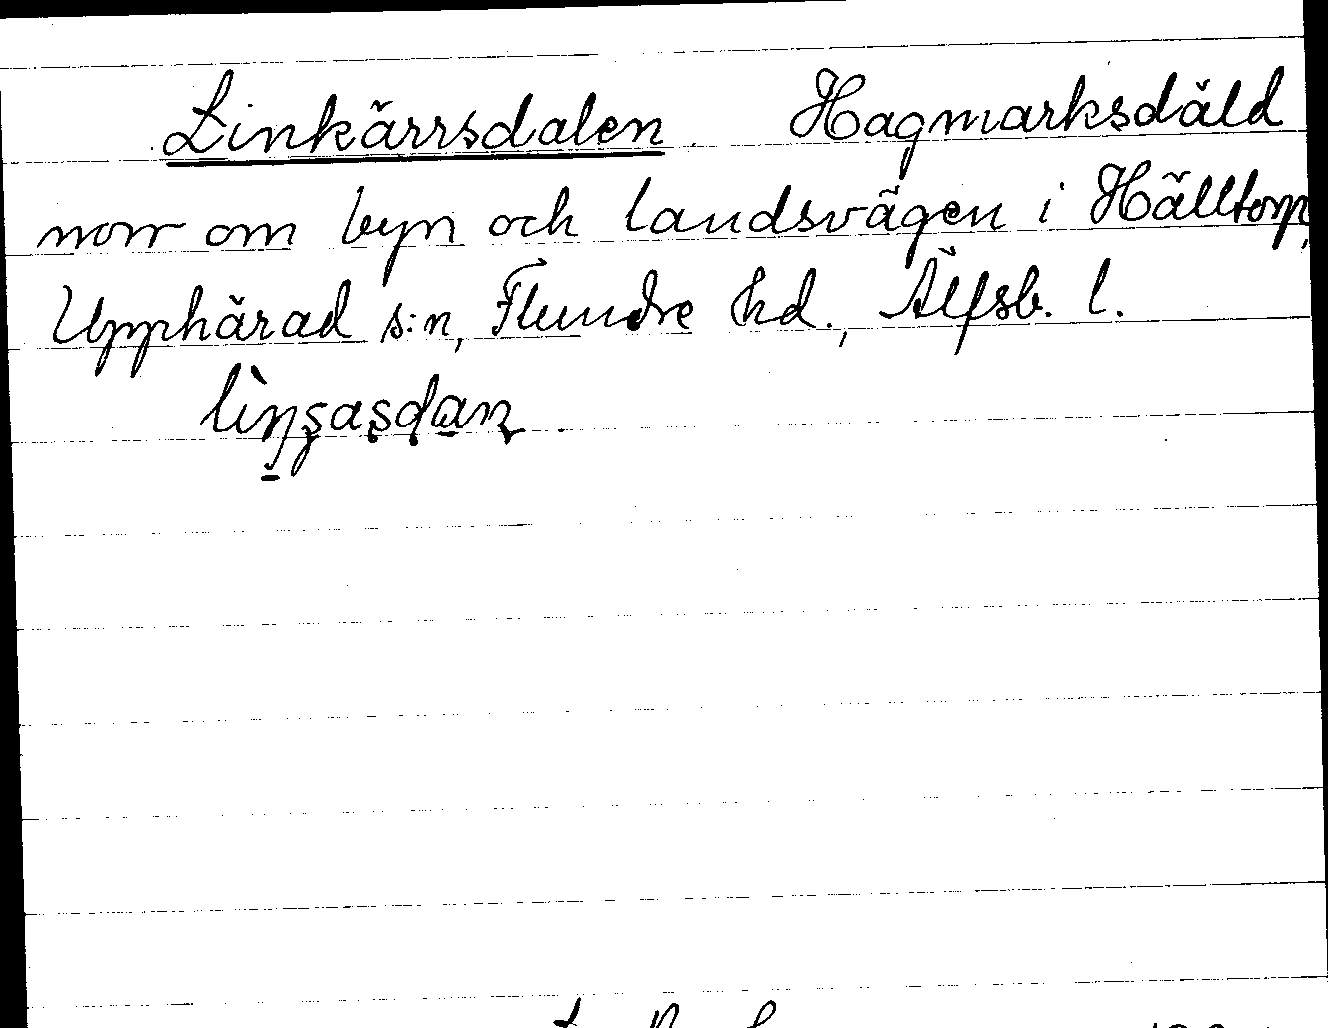 Linkärrsdalen Hagmarksdäld
norr om byn och landsvägen i Hälltorp,
Upphärad s:n, Flundre hd., Älfsb. l.